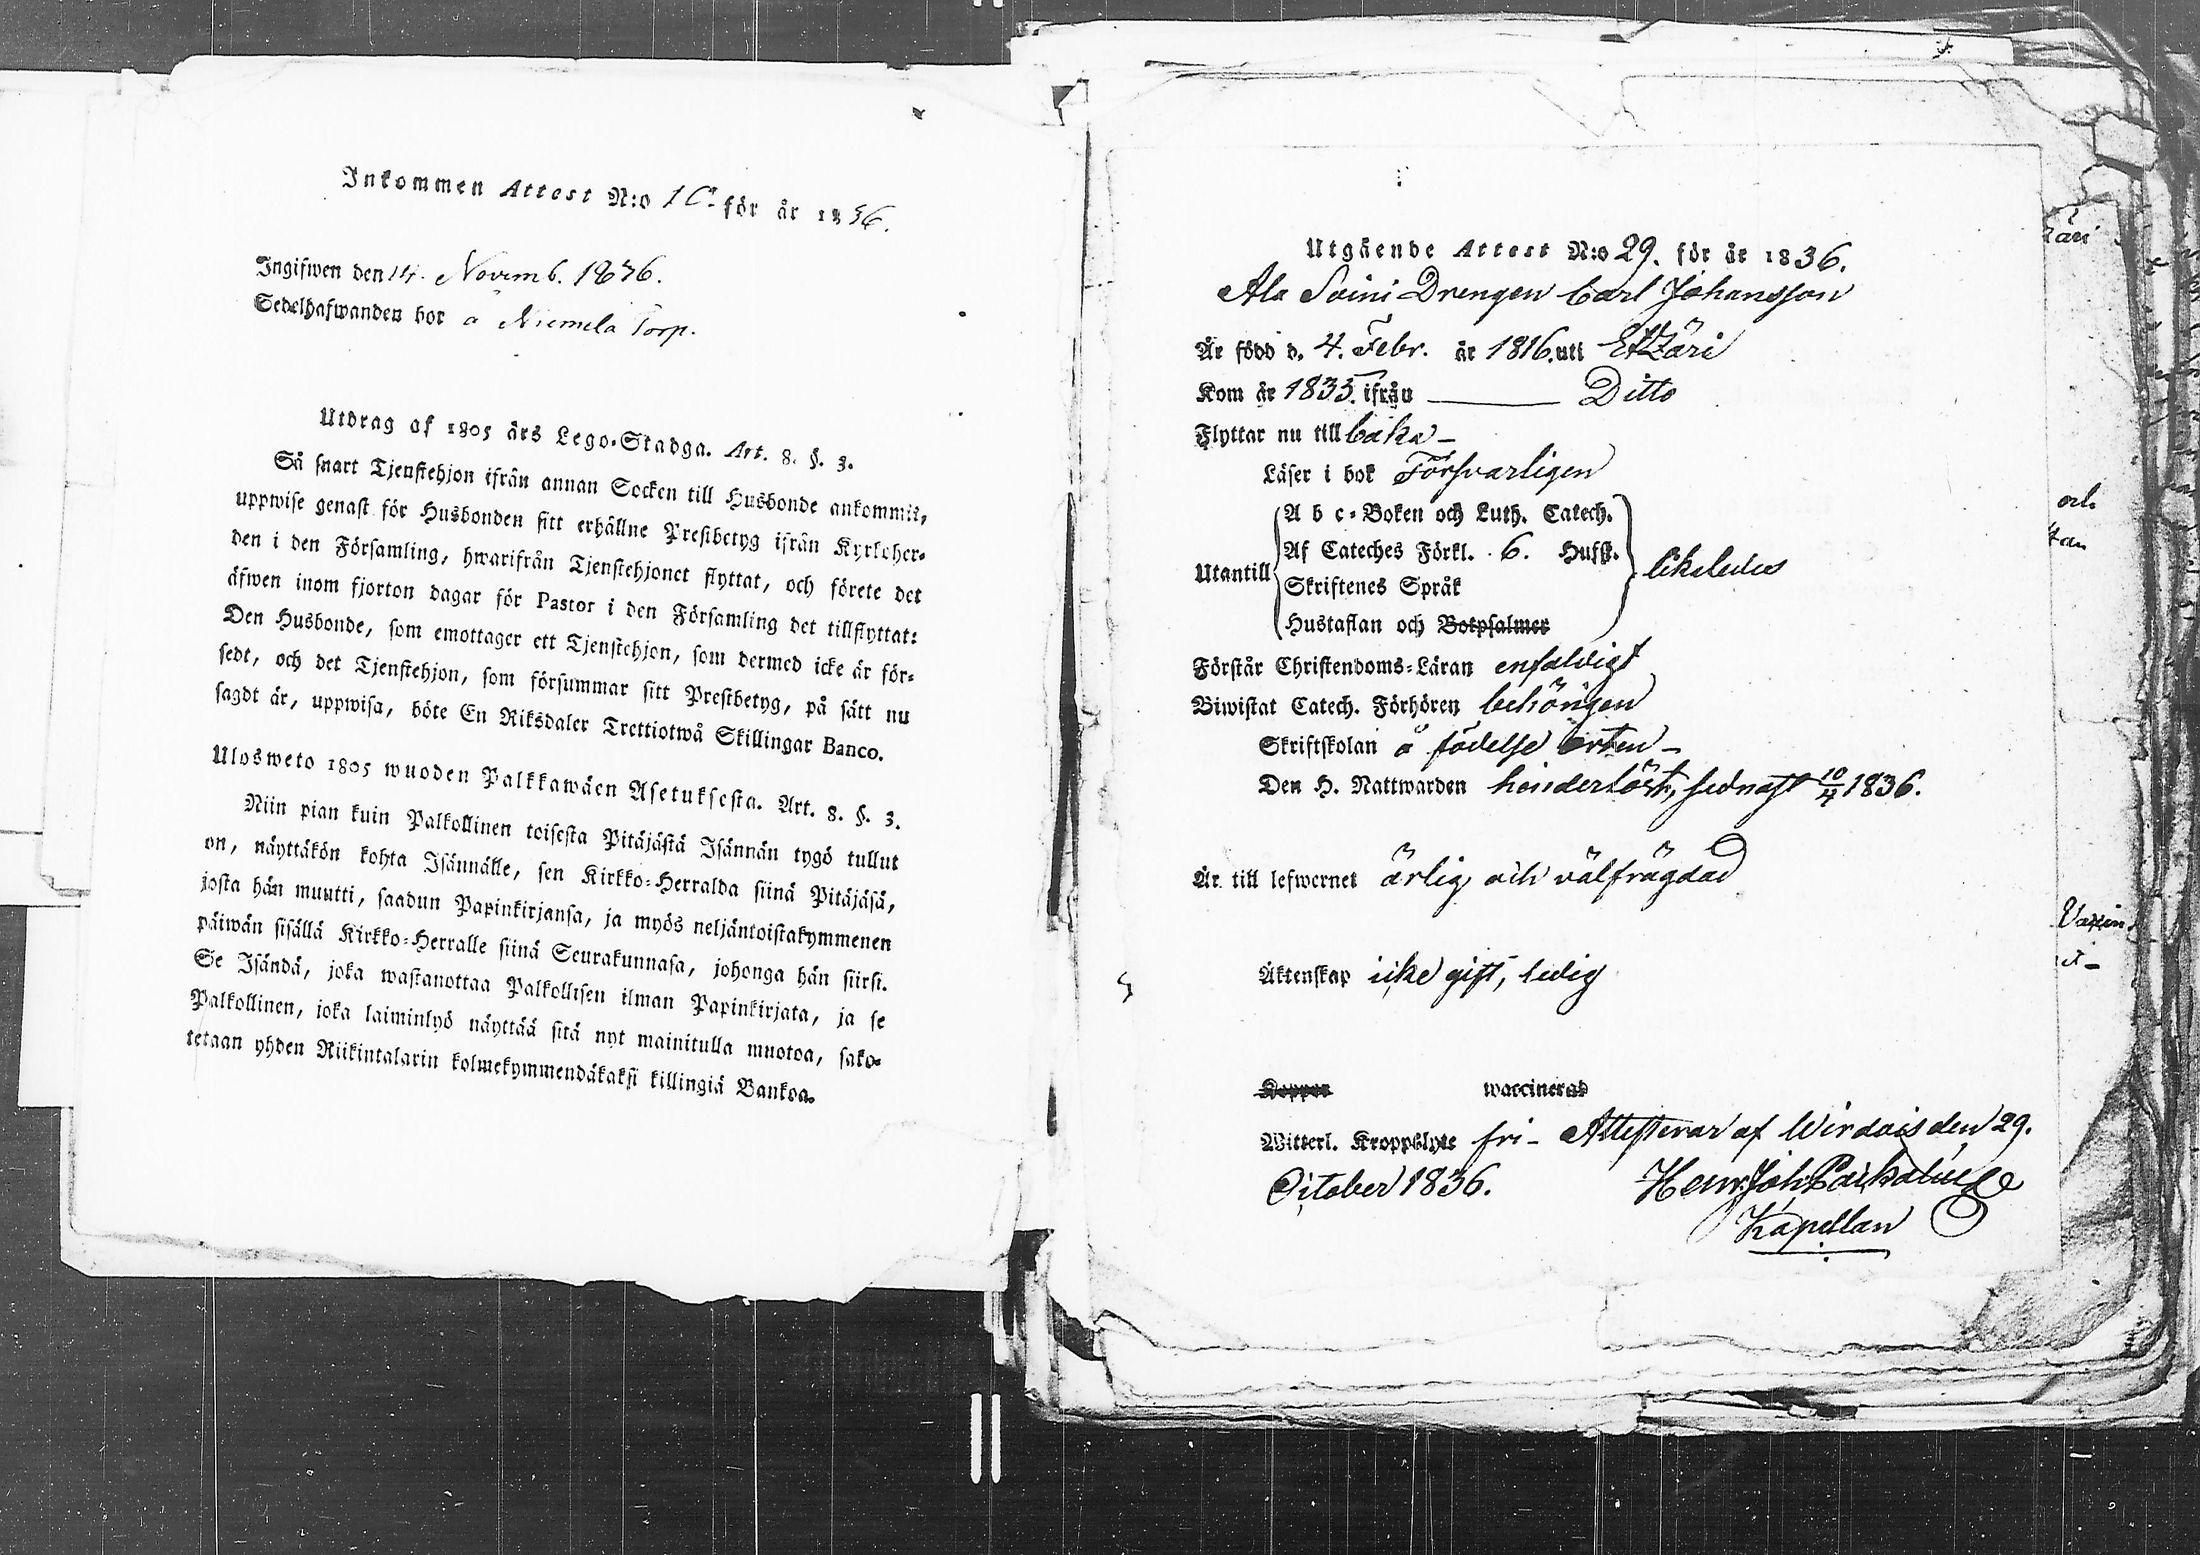 Inkommen Attest N:o 10. för år 1836.
Ingifwen den 14. Novemb. 1836.
Sedelhafwanden bor å Niemelä Torp.
Utdrag af 1805 års Lego-Stadga. Art. 8. §. 3.
Så snart Tjenstehjon ifrån annan Socken till Husbonde ankommit,
uppwise genast för Husbonden sitt erhållne Prestbetyg ifrån Kyrkoher-
den i den Församling, hwarifrån Tjenstehjonet flyttat, och förete det
äfwen inom fjorton dagar för Pastor i den Församling det tillflyttat:
Den Husbonde, som emottager ett Tjenstehjon, som dermed icke är för-
sedt, och det Tjenstehjon, som försummar sitt Prestbetyg, på sätt nu
sagdt är, uppwisa, böte En Riksdaler Trettiotwå Skillingar Banco.
Ulosweto 1805 wuoden Palkkawäen Asetuksesta. Art. 8. §. 3.
Niin pian kuin Palkollinen toisesta Pitäjästä Isännän tygö tullut
on, näyttäkön kohta Isännälle, sen Kirkko-Herralda siinä Pitäjäsä,
josta hän muutti, saadun Papinkirjansa, ja myös neljäntoistakymmenen
päiwän sisällä Kirkko-Herralle siinä Seurakunnasa, johonga hän siirsi.
Se Isändä, joka wastanottaa Palkollisen ilman Papinkirjata, ja se
Palkollinen, joka laiminlyö näyttää sitä nyt mainitulla muotoa, sako-
tetaan yhden Riikintalarin kolmekymmendäkaksi killingiä Bankoa.
Utgående Attest N:o 29. för år 1836.
Ala Soini Drengen Carl Johansson
Är född d. 4. Febr. år 1816. uti Etzäri
Kom år 1835. ifrån Ditto
Flyttar nu till baka -
Läser i bok Försvarligen
A b c-Boken och Luth. Catech.
Af Cateches Förkl. 6. Hufst.
Utantill likaledes
Skriftenes Språk
Hustaflan och Botpsalmer
Förstår Christendoms-Läran enfaldigt
Biwistat Catech. Förhören behörigen
Skriftskolan å födelse orten -
Den H. Nattwarden hinderlöst, sednast 10/4 1836.
Är till lefwernet ärlig och välfrägdad
Äktenskap icke gift, ledig
Koppor waccinerad
Witterl. Kroppslyte fri - Attesterar af Wirdois den 29.
October 1836. Henr. Joh.
Kapellan